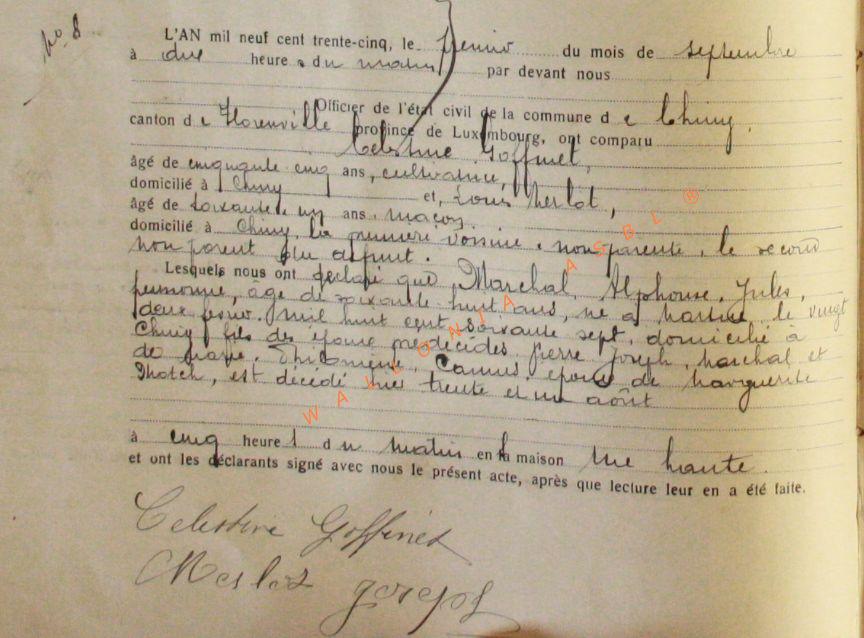 No 8
L'AN mil neuf cent trente-cinq, le premier du mois de septembre
à dix heures du matin par devant nous
Officier de l'état civil de la commune de Chiny,
canton de Florenville province de Luxembourg, ont comparu
Célestine Goffinet,
âgé de cinquante cinq ans, cultivatrice,
domicilié à Chiny et, Louis Merlot,
âgé de soixante un ans maçon
domicilié à Chiny, la première voisine non parente, le second
non parent du défunt.
Lesquels nous ont déclaré que Marchal, Alphonse, Jules,
pensionné, âgé de soixante huit ans, né à le vingt
deux février mil huit cent soixante sept, domicilié à
Chiny fils des époux prédécédés Pierre Joseph Marchal et
de Marie Philomène Camus époux de Marguerite
, est décédé hier trente et un août
à cinq heures du matin en la maison rue haute.
et ont les déclarants signé avec nous le présent acte, après que lecture leur en a été faite.
Celestine Goffinet
Merlot Joseph
WALLONIA ASBL ®